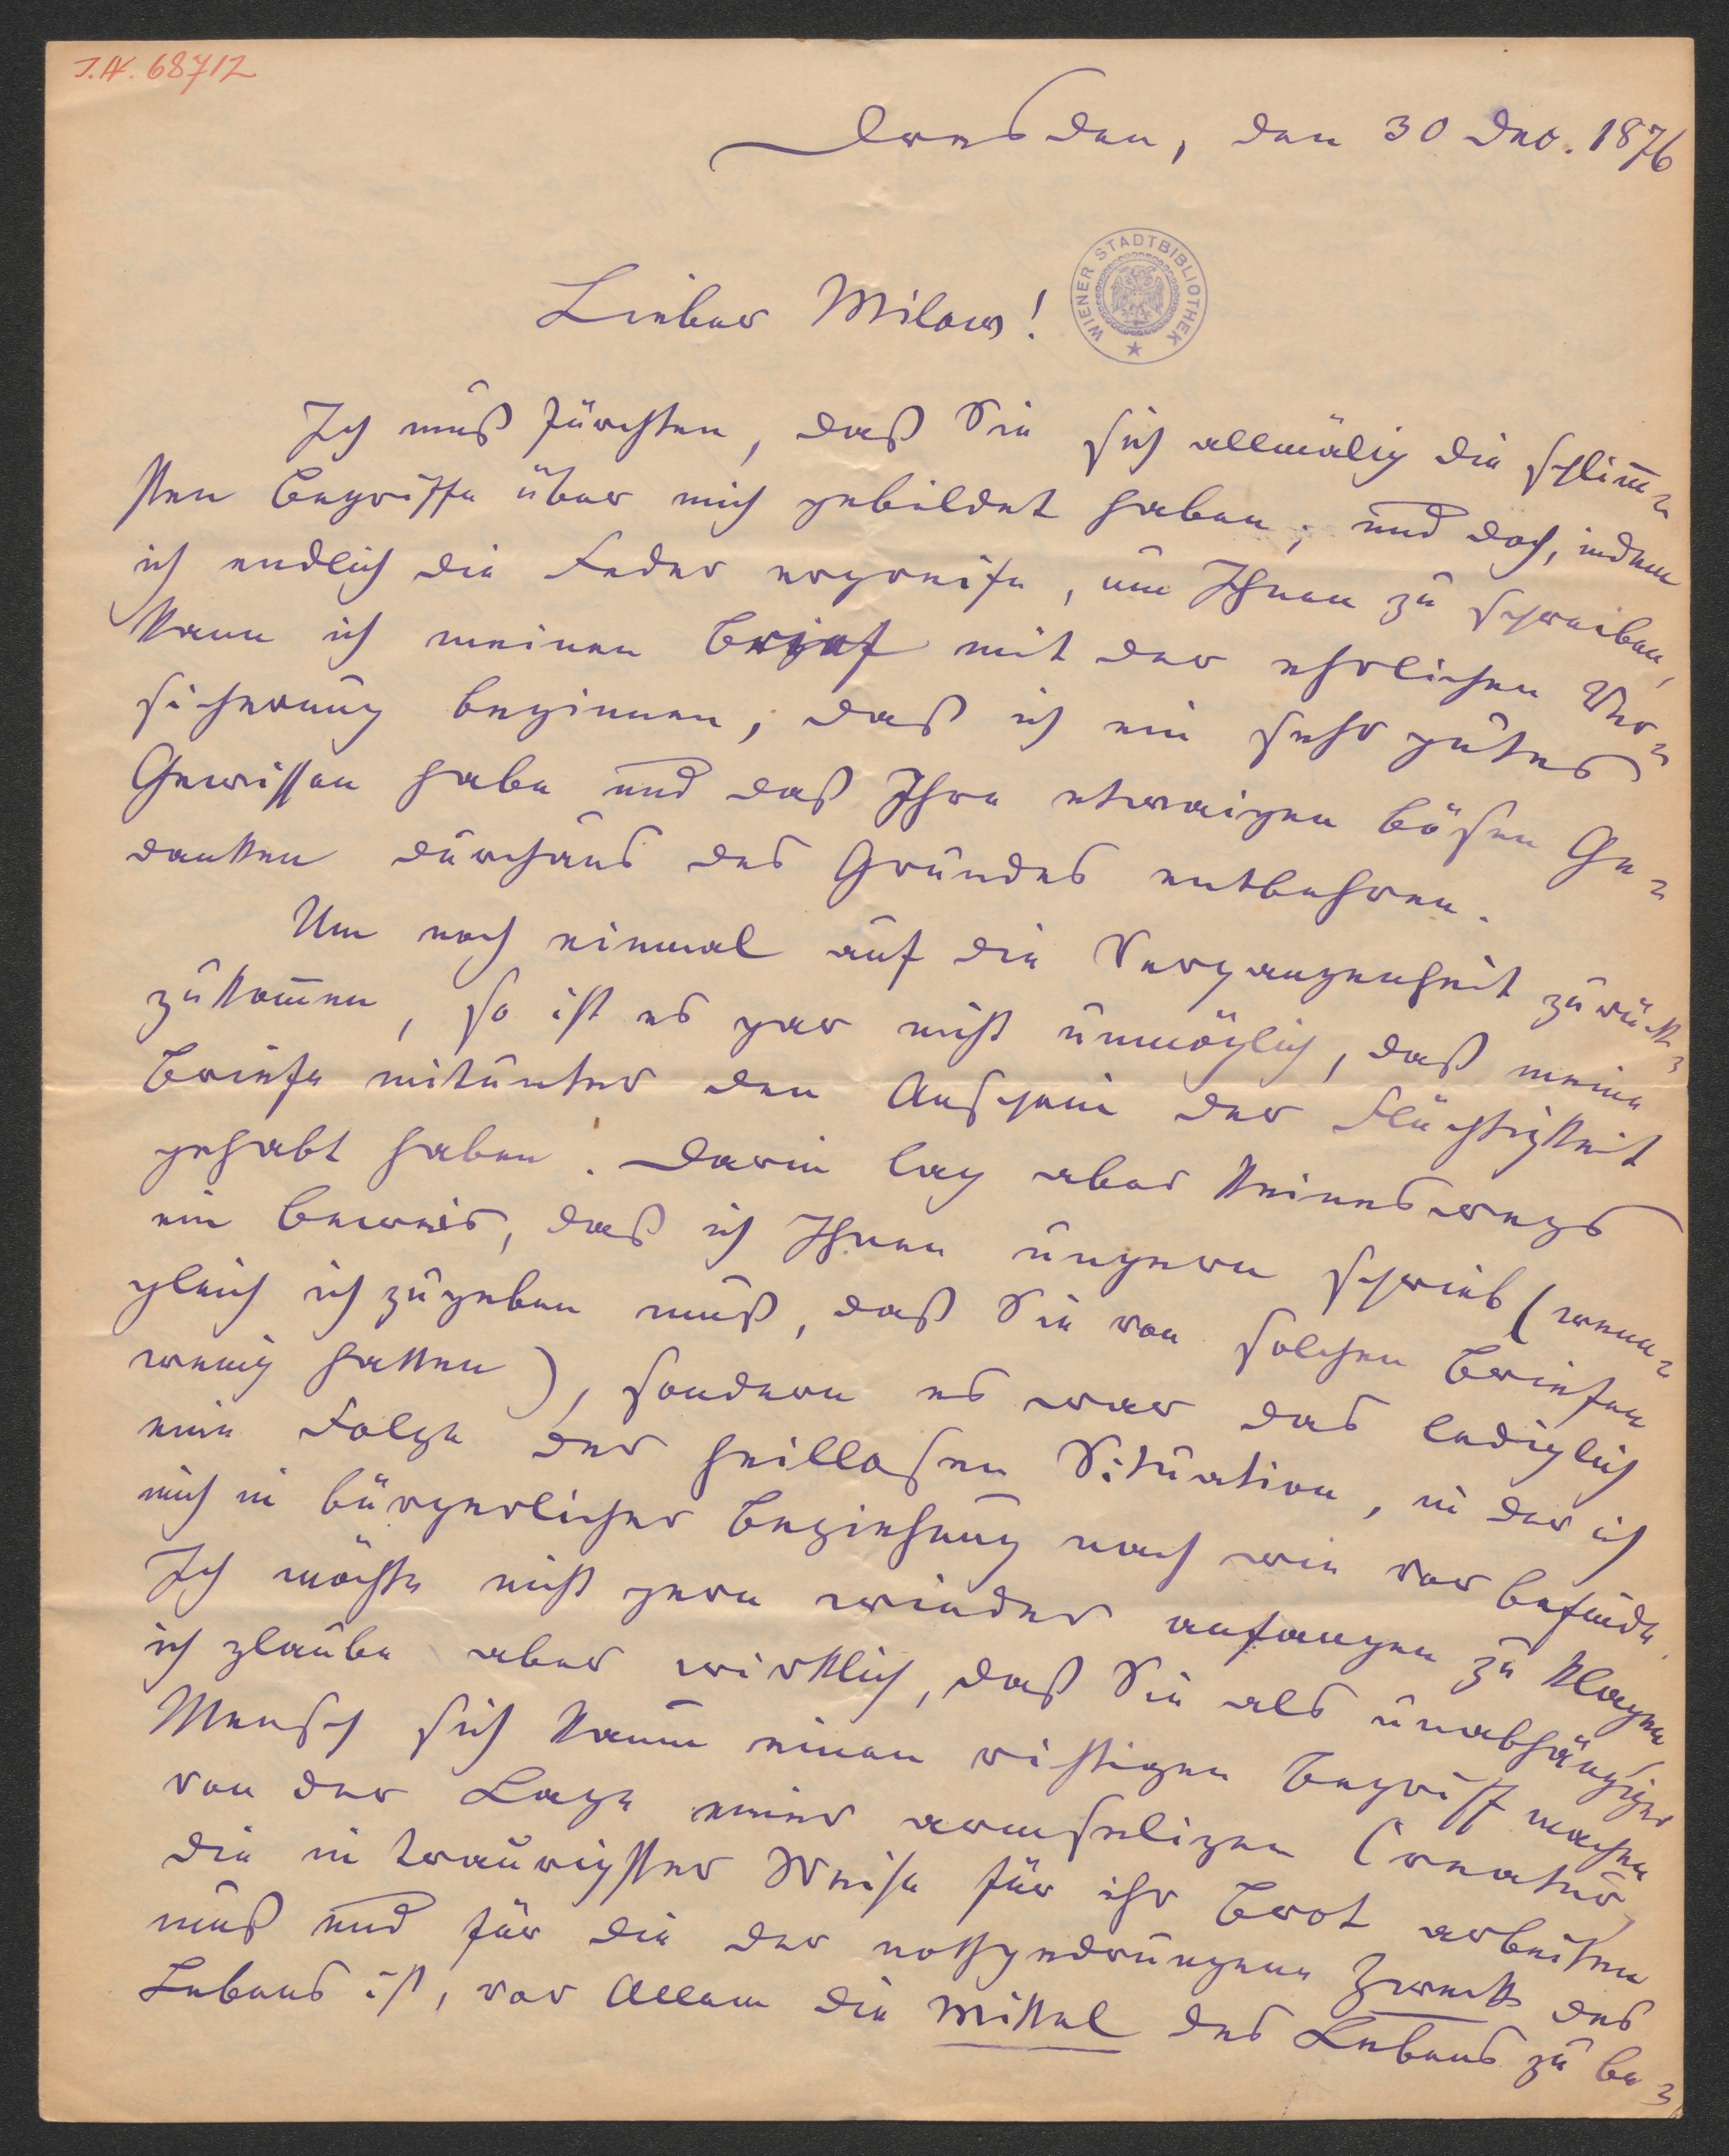 J.N. 68712
Dresden, den 30 Dec. 1876
Lieber Milow!
WIENER STADTBIBLIOTHEK
Ich muß fürchten, daß Sie sich allmälig die schlim̅-
sten Begriffe über mich gebildet haben; und doch, indem
ich endlich die Feder ergreife, um Ihnen zu schreiben,
kann ich meinen Brief mit der ehrlichen Ver-
sicherung beginnen, daß ich ein sehr gutes
Gewissen habe und daß Ihre etwaigen bösen Ge-
danken durchaus des Grundes entbehren.
Um noch einmal auf die Vergangenheit zurück-
zukom̅en, so ist es gar nicht unmöglich, daß meine
Briefe mitunter den Anschein der Flüchtigkeit
gehabt haben. Darin lag aber keineswegs
ein Beweis, daß ich Ihnen ungern schrieb (wenn-
gleich ich zugeben muß, daß Sie von solchen Briefen
wenig hatten), sondern es war das lediglich
eine Folge der heillosen Situation, in der ich
mich in bürgerlicher Beziehung nach wie vor befinde.
Ich möchte nicht gern wieder anfangen zu klagen,
ich glaube aber wirklich, daß Sie als unabhängiger
Mensch sich kaum einen richtigen Begriff machen
von der Lage einer armseligen Creatur,
die in traurigster Weise für ihr Brot arbeiten
muß und für die der nothgedrungene Zweck des
Lebens ist, vor Allem die Mittel des Lebens zu be-